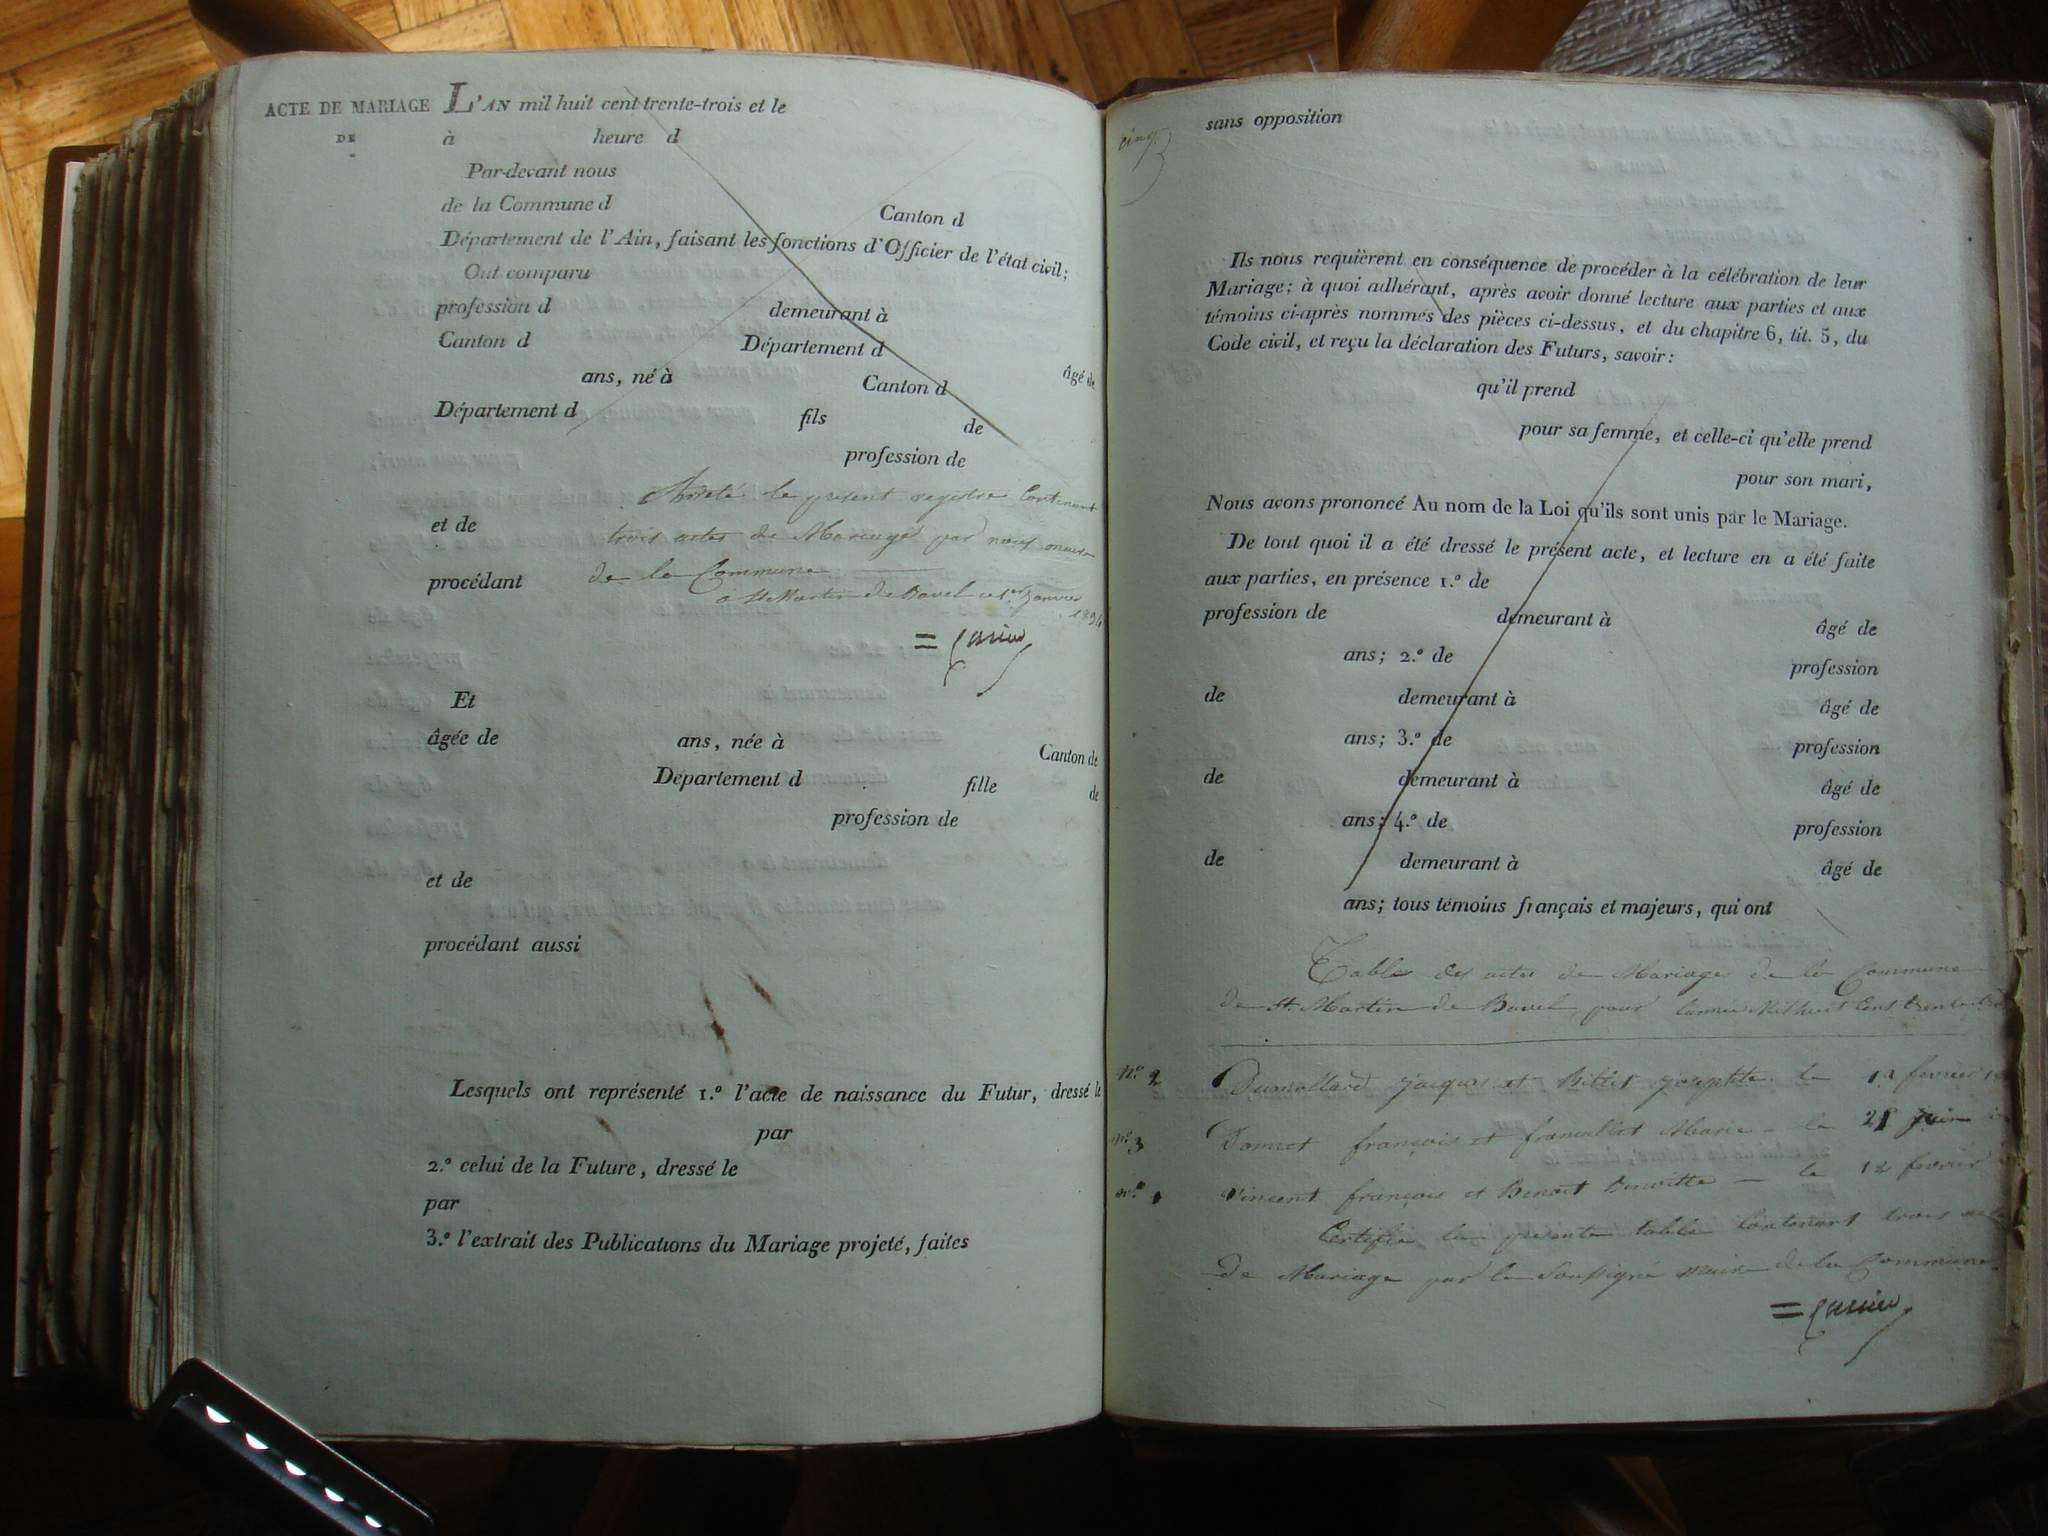 ACTE DE MARIAGE L'AN mil huit cent trente-trois et le
DE à heure d
Par-devant nous
de la Commune d Canton d
Département de l'Ain, faisant les fonctions d'Officier de l'état civil;
Ont comparu
profession d demeurant à
Canton d Département d âgé de
ans, né à Canton d
Département d fils de
profession de
Arrêté le present registre Contenant
et de
trois actes de Mariage par nous maire
de la Commune
procédant
à St Martin de Bavel ce 1er janvier
1834
Et
âgée de ans, née à Canton de
Département d fille de
profession de
et de
procédant aussi
Lesquels ont représenté 1.º l'acte de naissance du Futur, dressé le
par
2.º celui de la Future, dressé le
par
3.º l'extrait des Publications du Mariage projeté, faites
cinq
sans opposition
Ils nous requièrent en conséquence de procéder à la célébration de leur
Mariage; à quoi adhérant, après avoir donné lecture aux parties et aux
témoins ci-après nommés des pièces ci-dessus, et du chapitre 6, tit. 5, du
Code civil, et reçu la déclaration des Futurs, savoir:
qu'il prend
pour sa femme, et celle-ci qu'elle prend
pour son mari,
Nous avons prononcé Au nom de la Loi qu'ils sont unis par le Mariage.
De tout quoi il a été dressé le présent acte, et lecture en a été faite
aux parties, en présence 1.º de
profession de demeurant à âgé de
ans; 2.º de profession
de demeurant à âgé de
ans; 3.º de profession
de demeurant à âgé de
ans; 4.º de profession
de demeurant à âgé de
ans; tous témoins français et majeurs, qui ont
Table des actes de Mariages de la Commune
de St. Martin de Bavel, pour lannée Mil huit Cent trente trois
nº 2 Dumollard jacques et Billet josephte le 12 fevrier
nº 3 françois et Marie - le 21 juin
nº 1 Vincent françois et Benoit Benoitte - le 12 fevrier
Certifié la presente table Contenant trois actes
De Mariage par le Soussigné maire de la Commune